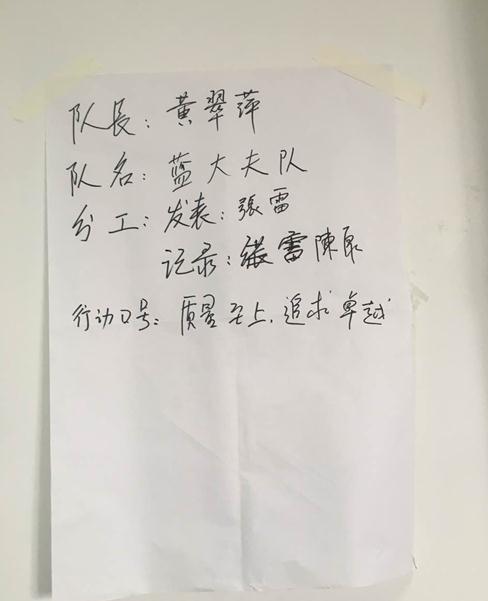 队長：黄翠萍
队名：蓝大夫队
分工：发表：張雷
记录：張雷陳
行动口号：质量至上，追求卓越